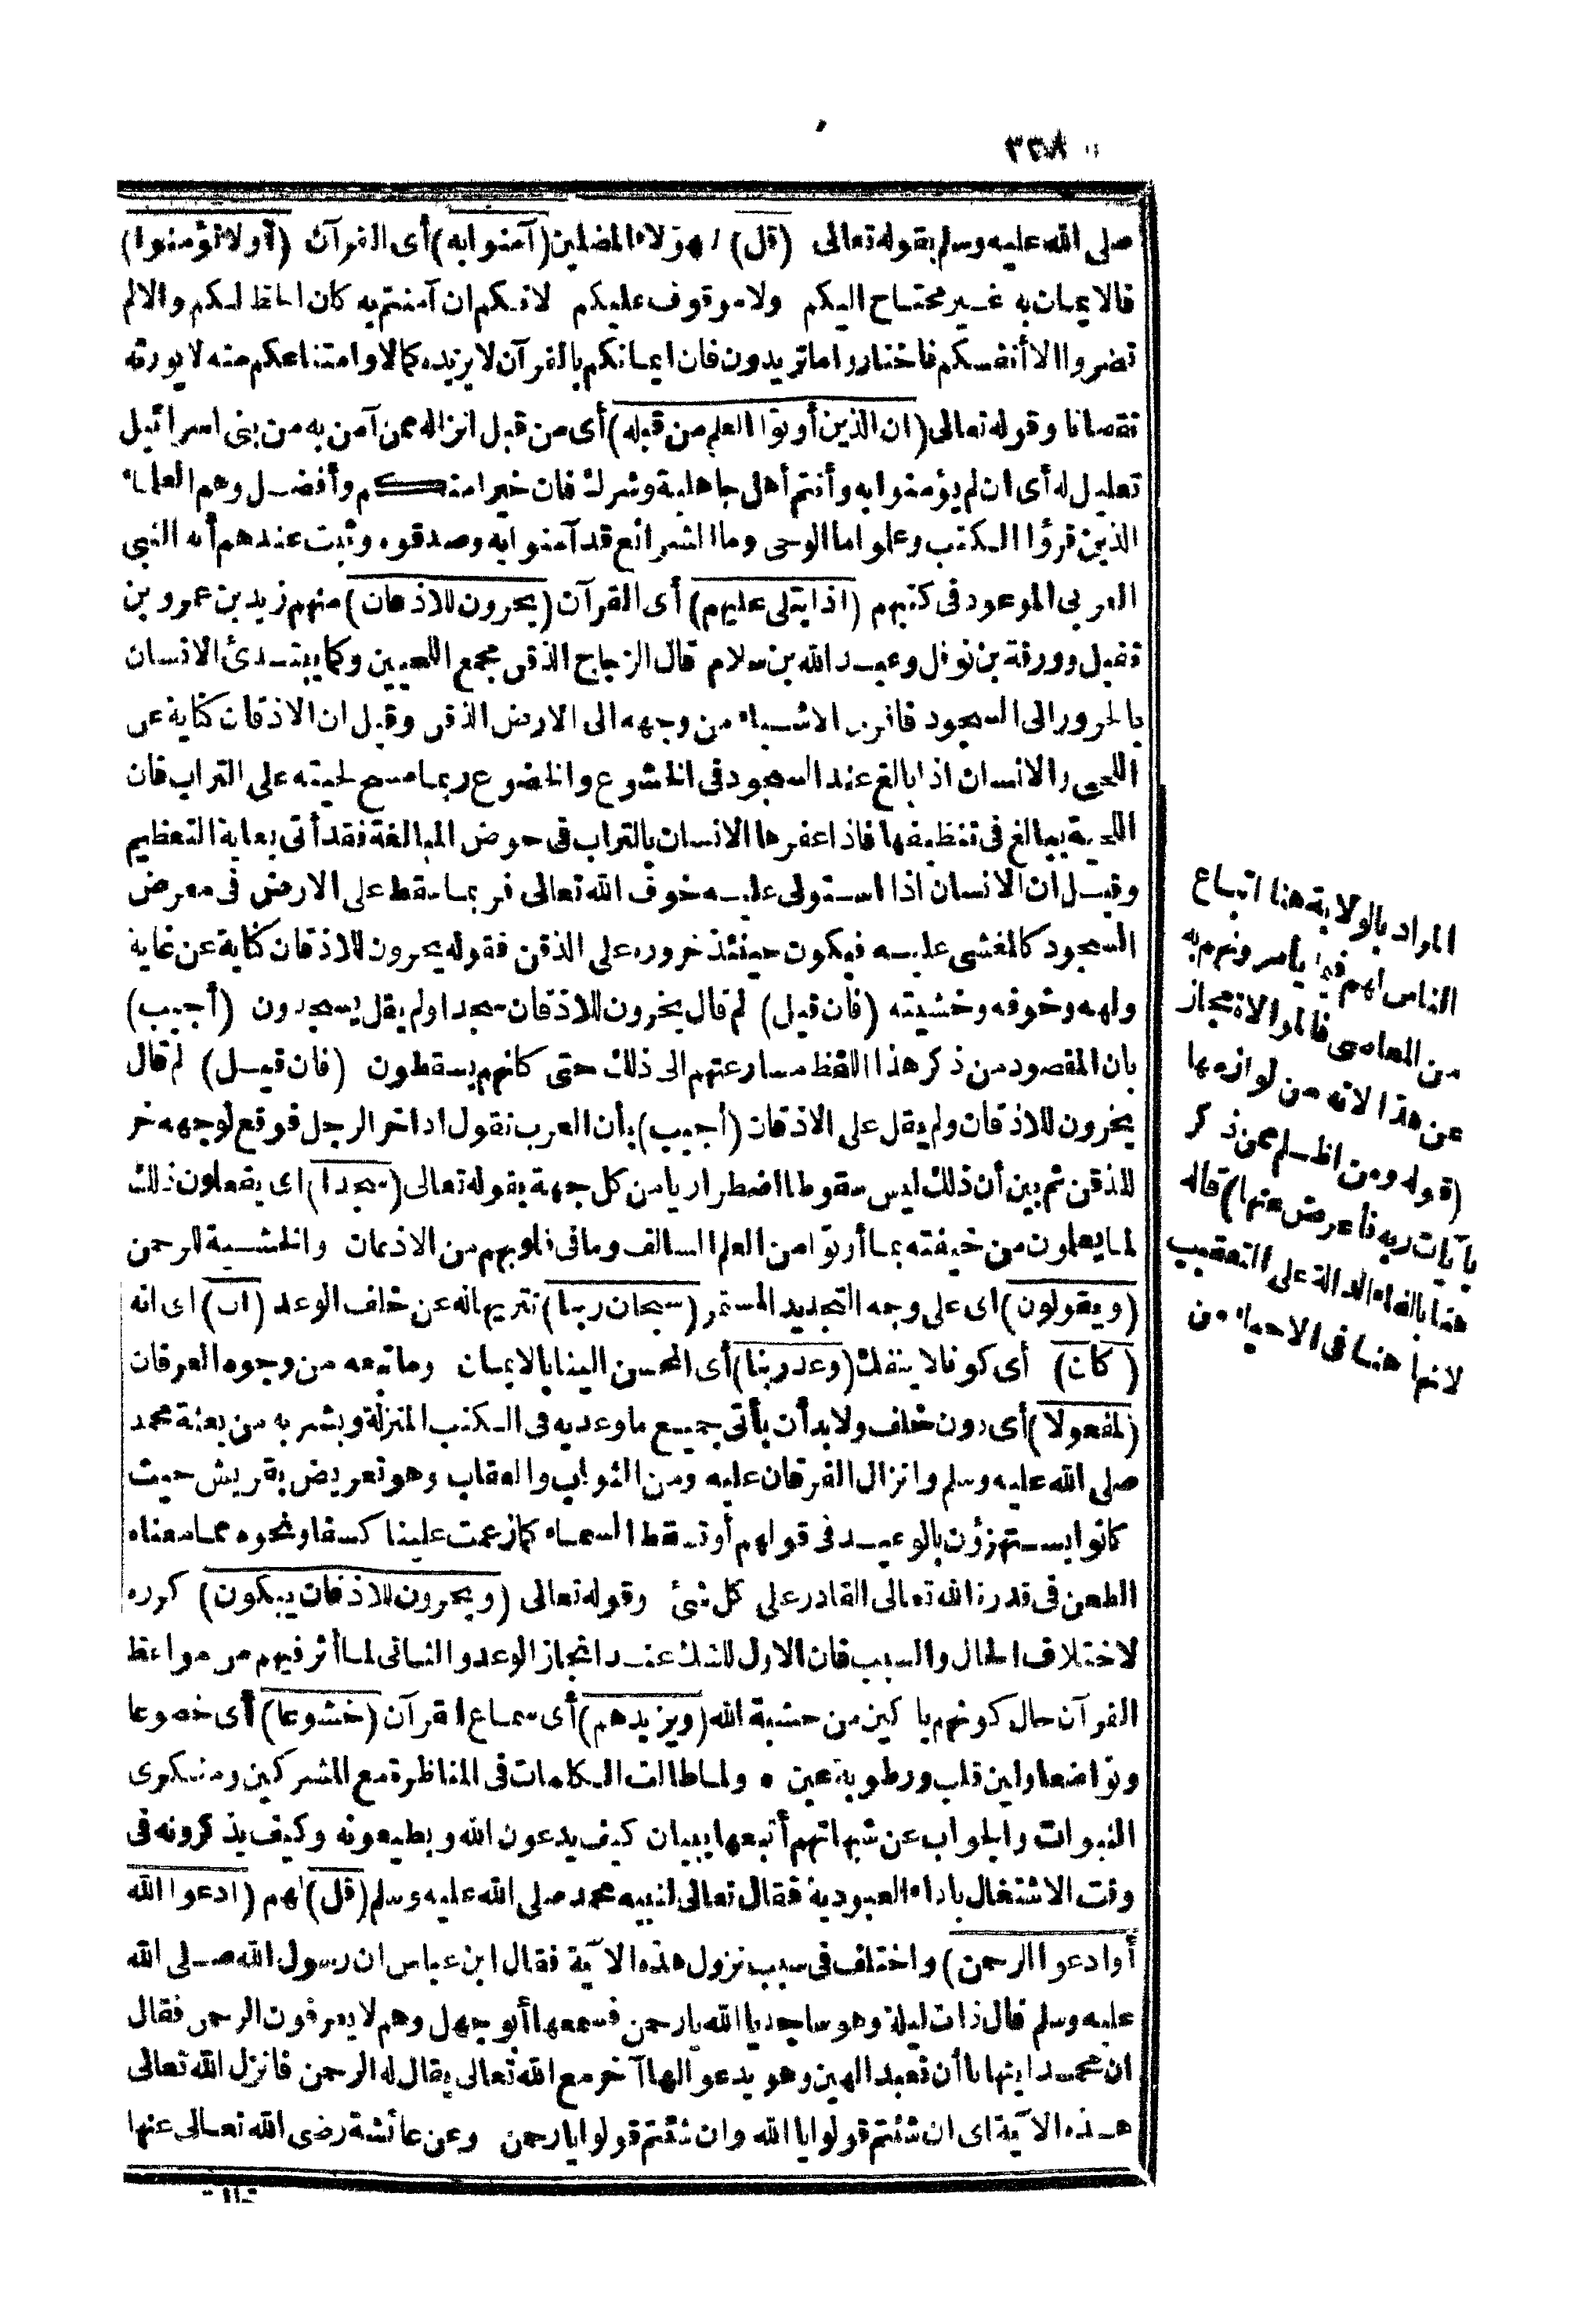 ٣٣٨
صلى الله عليه وسلم بقوله تعالى (قل) لهؤلاء المضلين (آمنوا به) أى القرآن (أولا تؤمنوا)
فالايمان به غير محتاج اليكم ولا موقوف عليكم لانكم ان آمنتم به كان الحظ لكم والالم
تضروا الا أنفسكم فاختاروا ما تريدون فان ايمانكم بالقرآن لا يزيده كمالا وامتناعكم منه لا يورثه
نقصانا وقوله تعالى (ان الذين أوتوا العلم من قبله) أى من قبل انزاله ممن آمن به من بنى اسرائيل
تعليل له أى ان لم يؤمنوا به وأنتم أهل جاهلية وشرك فان خيرا منكم وأفضل وهم العلماء
الذين قرؤا الكتب وعلموا ما الوحى وما الشرائع قد آمنوا به وصدقوه وثبت عندهم أنه النبى
العربى الموعود فى كتبهم (اذا يتلى عليهم) أى القرآن (يخرون للاذقان) منهم زيد بن عمرو بن
نفيل وورقة بن نوفل وعبد الله بن سلام قال الزجاج الذقن مجمع اللحيين وكما يبتدئ الانسان
بالخرور الى السجود فاقرب الاشياء من وجهه الى الارض الذقن وقيل ان الاذقان كناية عن
اللحى والانسان اذا بالغ عند السجود فى الخشوع والخضوع ربما مسح لحيته على التراب فان
اللحية يبالغ فى تنظيفها فاذا عفرها الانسان بالتراب فى حوض المبالغة فقد أتى بغاية التعظيم
وقيل ان الانسان اذا استولى عليه خوف الله تعالى فربما سقط على الارض فى معرض
السجود كالمغشى عليه فيكون حينئذ خروره على الذقن فقوله يخرون للاذقان كناية عن غاية
ولهه وخوفه وخشيته (فان قيل) لم قال يخرون للاذقان سجدا ولم يقل يسجدون (أجيب)
بان المقصود من ذكر هذا اللفظ مسارعتهم الى ذلك حتى كانهم يسقطون (فان قيل) لم قال
يخرون للاذقان ولم يقل على الاذقان (أجيب) بأن العرب تقول اذا خر الرجل فوقع لوجهه خر
للذقن ثم بين أن ذلك ليس سقوطا اضطراريا من كل جهة بقوله تعالى (سجدا) اى يفعلون ذلك
لما يعلمون من خيفته بما أوتوا من العلم السالف وما فى قلوبهم من الاذعان والخشية للرحمن
(ويقولون) اى على وجه التجديد المستمر (سبحان ربنا) تنزيها له عن خلف الوعد (ان) اى انه
(كان) أى كونا لا ينفك (وعد ربنا) أى المحسن الينا بالايمان وما تبعه من وجوه العرفان
(لمفعولا) أى دون خلف ولا بد أن يأتى جميع ما وعد به فى الكتب المنزلة وبشر به من بعثة محمد
صلى الله عليه وسلم وانزال الفرقان عليه ومن الثواب والعقاب وهو تعريض بقريش حيث
كانوا يستهزؤن بالوعيد فى قولهم أو تسقط السماء كما زعمت علينا كسفا ونحوه مما معناه
الطعن فى قدرة الله تعالى القادر على كل شئ وقوله تعالى (ويخرون للاذقان يبكون) كرره
لاختلاف الحال والسبب فان الاول للشكر عند انجاز الوعد والثانى لما أثر فيهم من مواعظ
القرآن حال كونهم باكين من خشية الله (ويزيدهم) أى سماع القرآن (خشوعا) أى خضوعا
وتواضعا ولين قلب ورطوبة عين * ولما طالت الكلمات فى المناظرة مع المشركين ومنكرى
النبوات والجواب عن شبهاتهم أتبعها ببيان كيف يدعون الله ويطيعونه وكيف يذكرونه فى
وقت الاشتغال باداء العبودية فقال تعالى لنبيه محمد صلى الله عليه وسلم (قل) لهم (ادعوا الله
أو ادعوا الرحمن) واختلف فى سبب نزول هذه الآية فقال ابن عباس ان رسول الله صلى الله
عليه وسلم قال ذات ليلة وهو ساجد يا الله يا رحمن فسمعها أبو جهل وهم لا يعرفون الرحمن فقال
ان محمدا ينهانا أن نعبد الهين وهو يدعو الها آخر مع الله تعالى يقال له الرحمن فانزل الله تعالى
هذه الآية اى ان شئتم قولوا يا الله وان شئتم قولوا يا رحمن وعن عائشة رضى الله تعالى عنها
قالت
المراد بالولاية هنا اتباع
الناس لهم فيما يأمرونهم به
من المعاصى فالموالاة مجاز
عن هذا لانه من لوازمها
(قوله ومن اظلم ممن ذكر
بآيات ربه فأعرض عنها) قاله
هنا بالفاء الدالة على التعقيب
لانما هنا فى الاحياء من